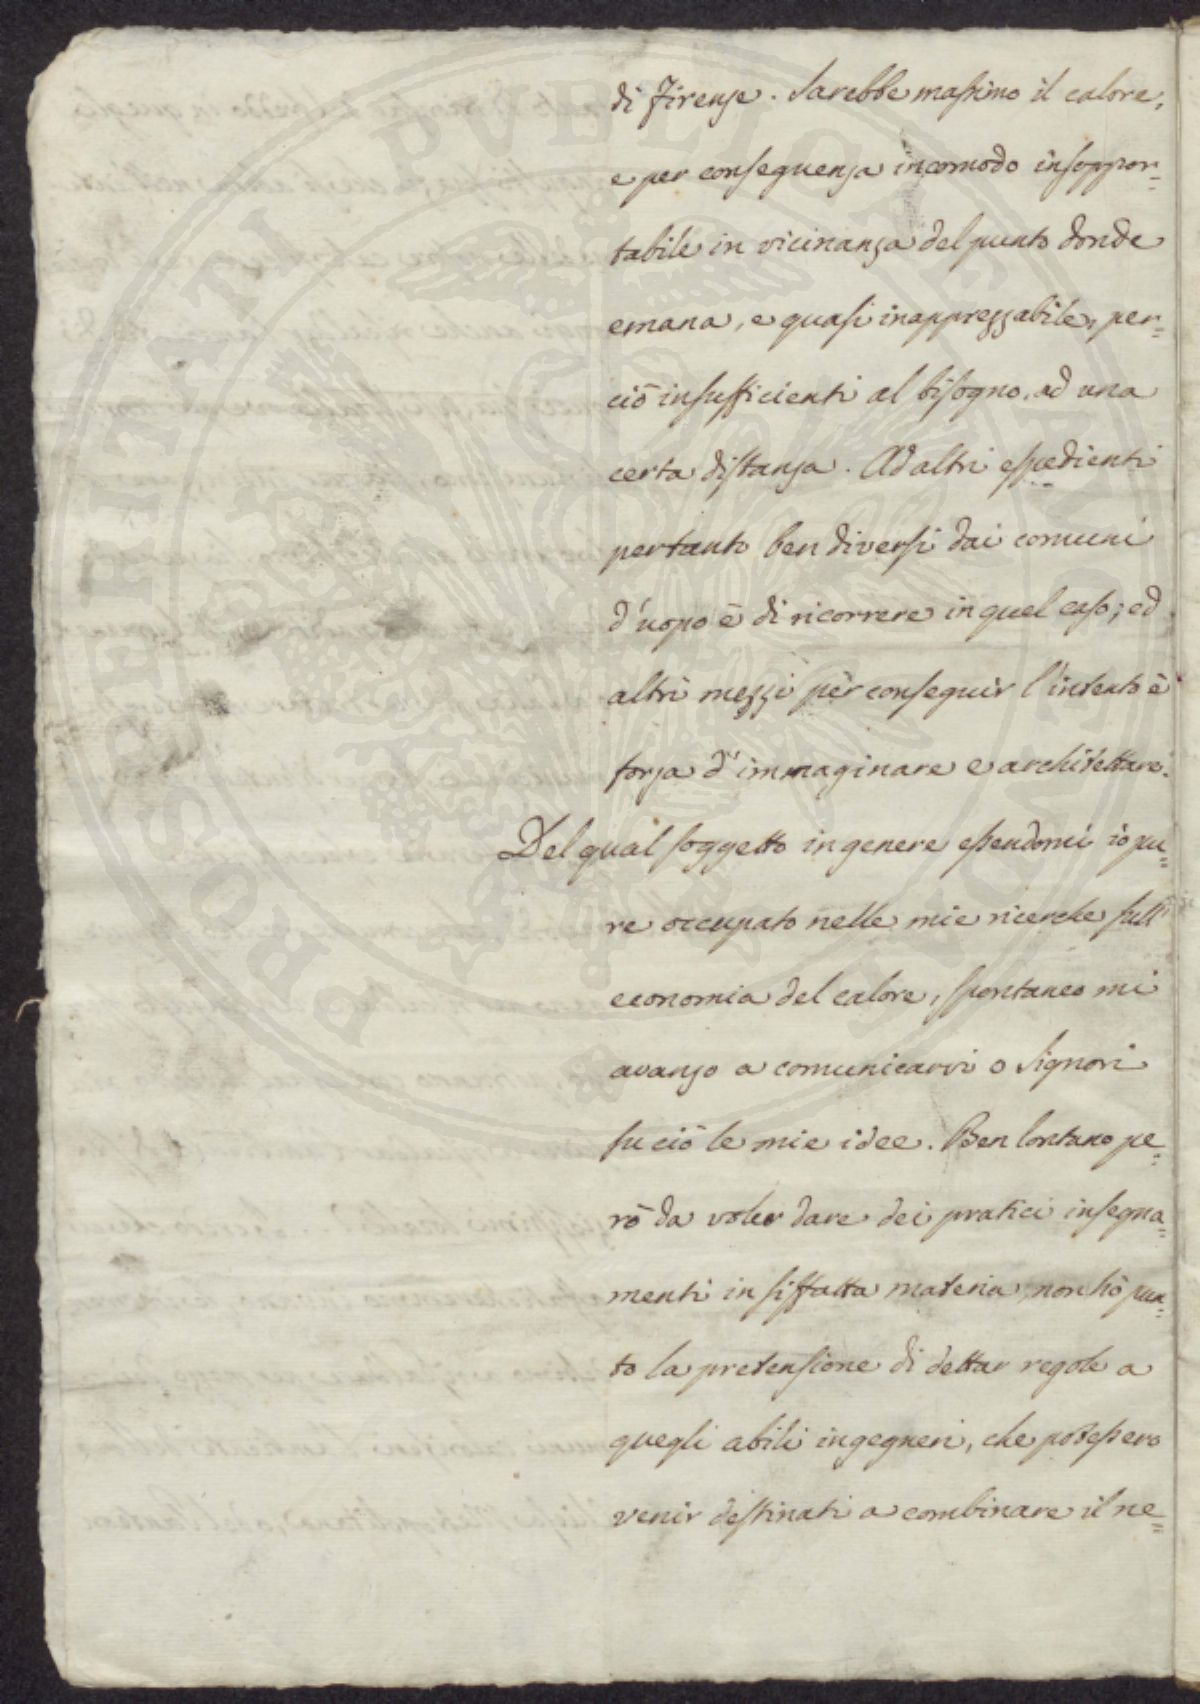 di Firenze. Sarebbe massimo il calore,
e per conseguenza incomodo insoppor=
tabile in vicinanza del punto donde
emana, e quasi inapprezzabile, per=
ciò insufficienti al bisogno, ad una
certa distanza. Ad altri espedienti
pertanto ben diversi dai comuni
d'uopo è di ricorrere in quel caso; ed
altri mezzi per conseguir l'intento è
forza d'immaginare e architettare.
Del qual soggetto in genere essendomi io pu=
re occupato nelle mie ricerche sull'
economia del calore, spontaneo mi
avanzo a comunicarvi o Signori
su ciò le mie idee. Ben lontano pe=
rò da voler dare dei pratici insegna=
menti in siffatta materia, non hò pun=
to la pretensione di dettar regole a
quegli abili ingegneri, che potessero
venir destinati a combinare il ne=
PROSPERITATI PUBLICAE AUGENDAE